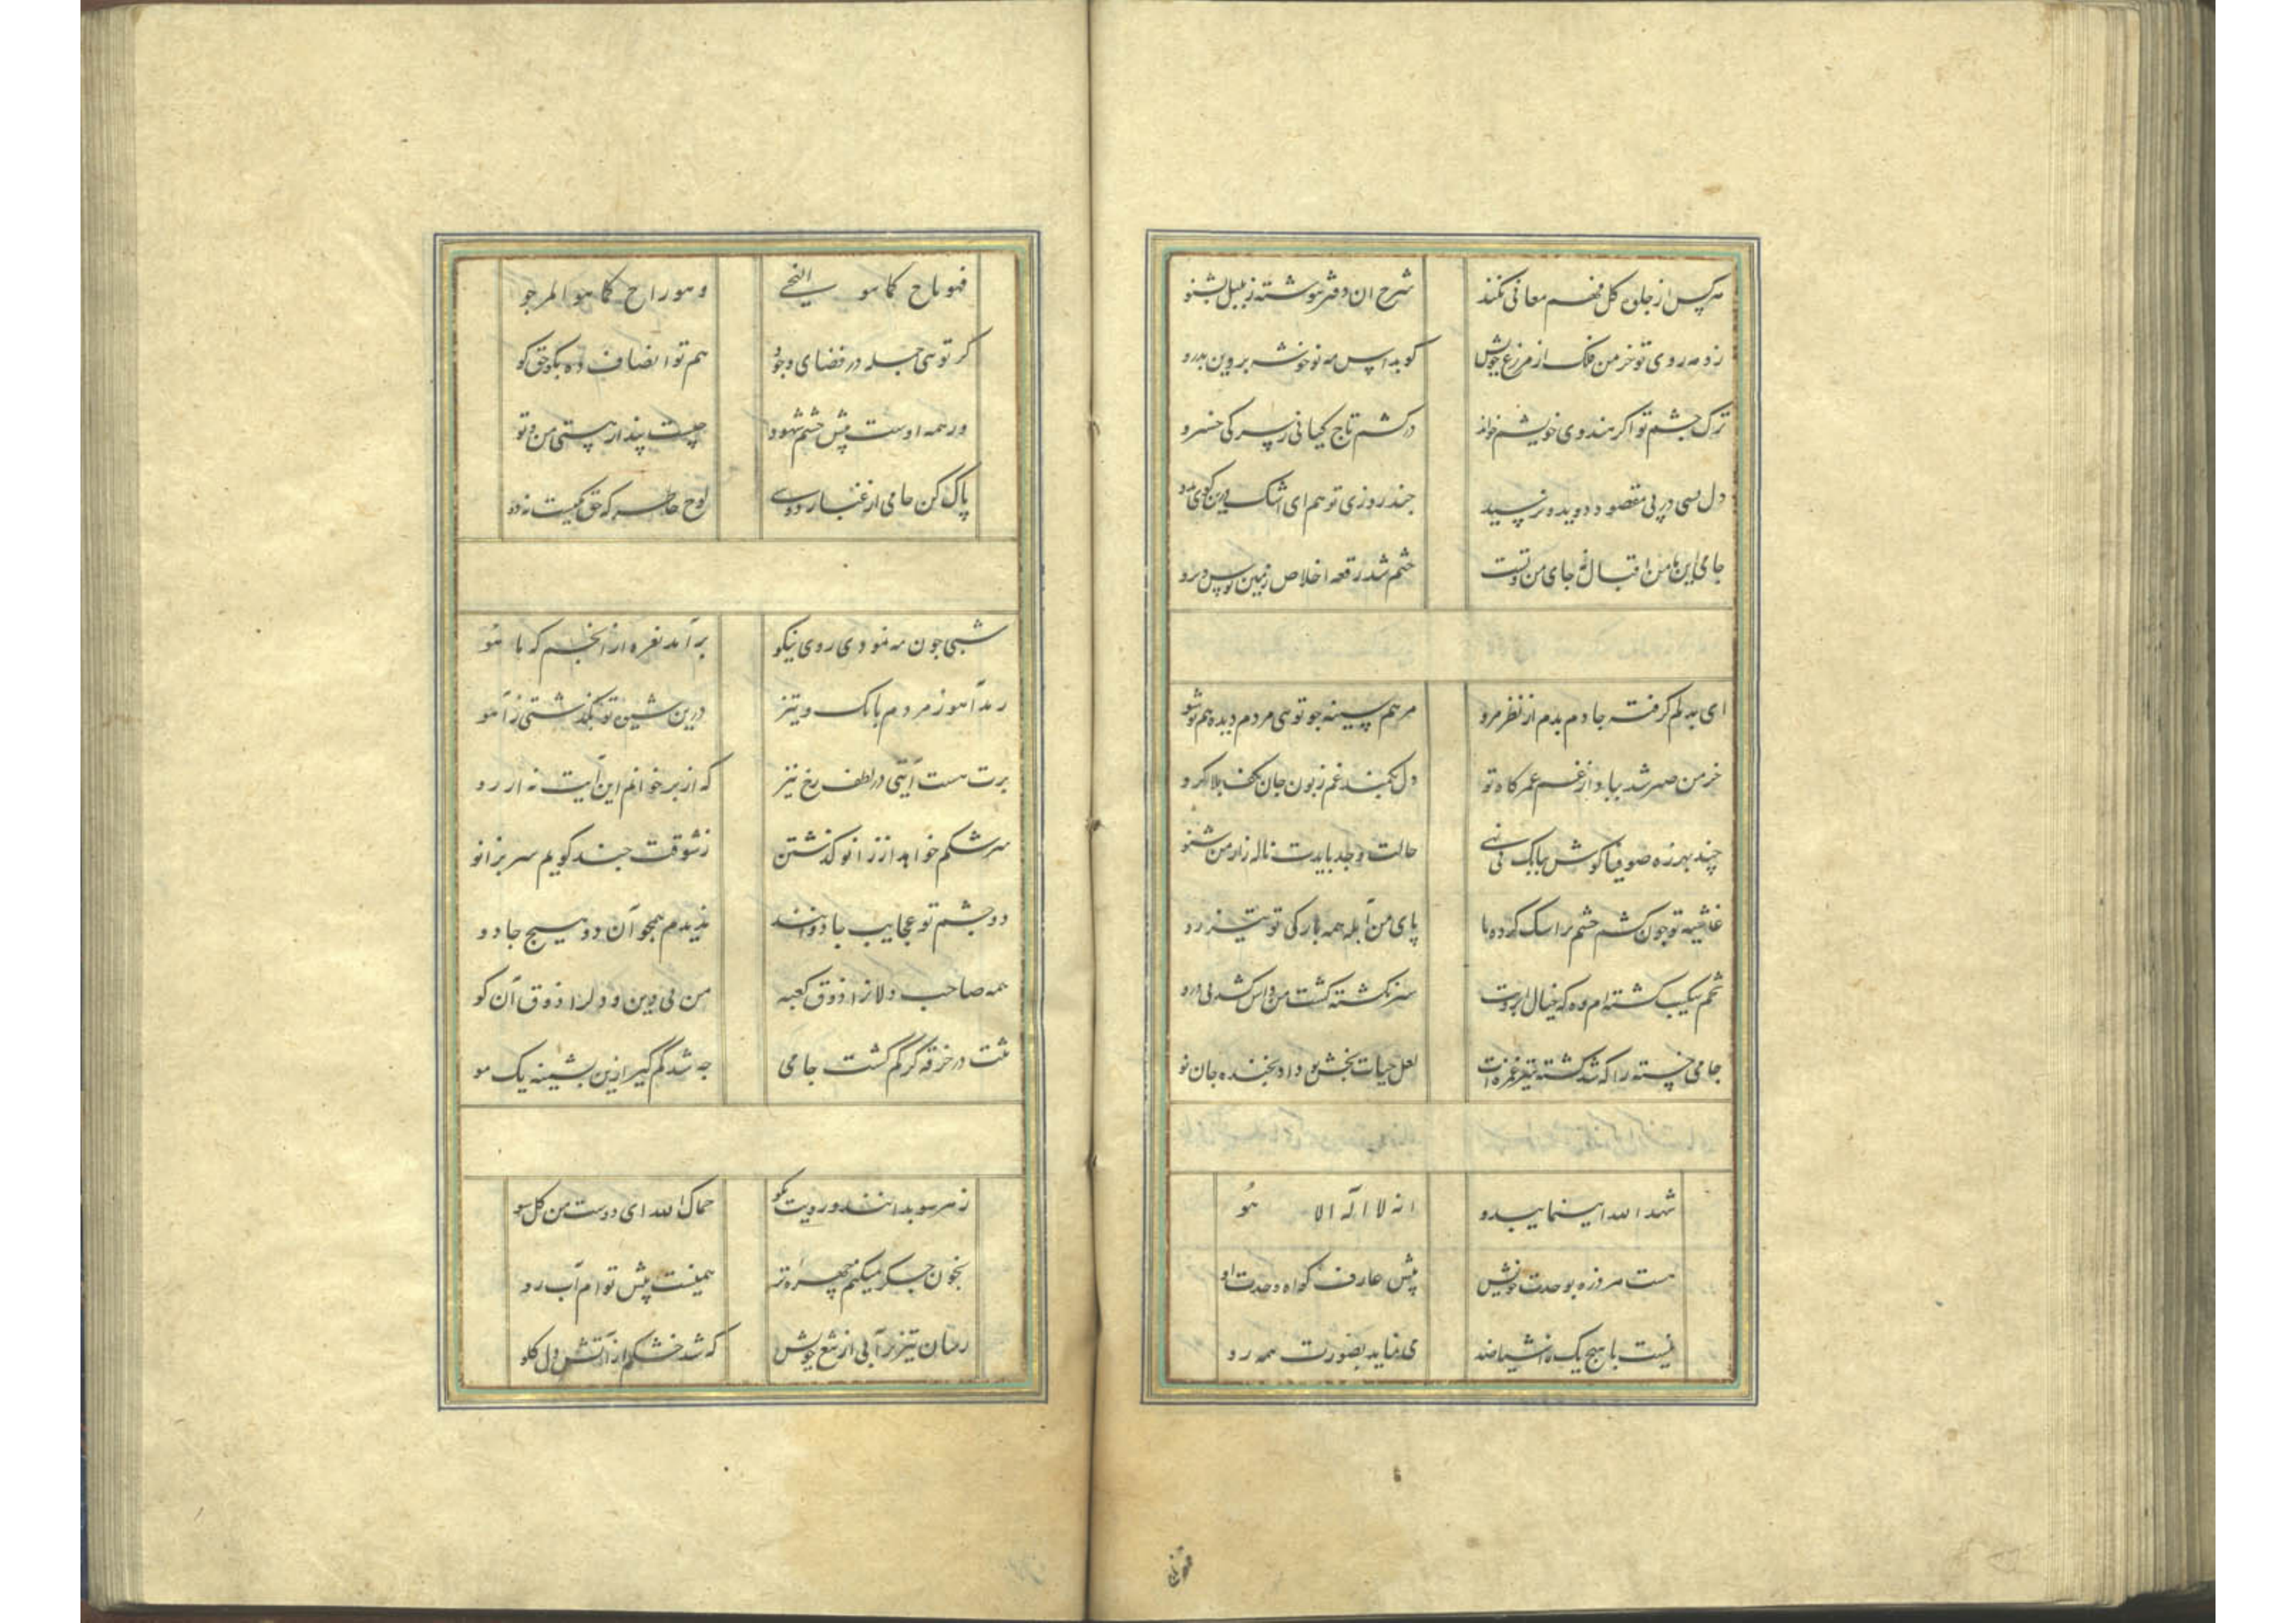 هر کس از جلوه کل فهم معانی نکند شرح ان دفتر ننوشته ز بلبل بشنو
زد مه روی تو خرمن فلک از مزرع خویش کو بداس مه نو خوشه پروین بدرو
ترک چشم تو اکر هندوی خویشم خواند درکشم تاج کیانی ز سر کی خسرو
دل بسی در پی مقصود دوید و نرسید چند روزی تو هم ای اشک درین کوی بدو
جامی این نامن اقبال نه جای من و تست ختم شد رقعه اخلاص زمین بوس و برو
ای بدلم کرفته جا دم بدم از نظر مرو مرهم سینه چو توئی مردم دیده هم تو شو
خرمن صبر شد بباد از غم عمر کاه تو دل بکمند غم زبون جان بکف بلا کرو
چند بهرزه صوفیا کوش ببانک نی نهی حالت وجد بایدت ناله زار من شنو
غاشیه تو چون کشم چشم براسک کرده پا پای من آبله همه بارکی تو تیزرو
تخم شکیب کشته ام وه که خیال ابرویت سبز نکشته کشت من داس کشد پی درو
جامی خسته را که شد کشته تیغ غمزه ات لعل حیات بخش تو داد بخنده جان نو
شهد الله اینما یبدو انه لا اله الا هو
هست هر ذره بوحدت خویش پیش عارف کواه وحدت او
نیست با هیچ یک ز اشیا ضد می نماید بصورت همه رو
فهو ماح کما هو الناجی وهو راح کما هو المرجو
کر توئی جمله در فضای وجود هم تو انصاف ده بکو حق کو
ور همه اوست پیش چشم شهود چیست پندار هستی من و تو
پاک کن جامی از غبار دوی لوح خاطر که حق یکیست نه دو
شبی چون مه نمودی روی نیکو برآمد نعره از انجم که یا هو
رمد آهو ز مردم بانک و تیز درین شیوه تو بکذشتی ز آهو
برت هست آیتی در لطف رخ نیز که از بر خوانم این آیت نه از رو
سرشکم خواهد از زانو کذشتن ز شوقت چند کویم سر بزانو
دو چشم تو عجایب جادوانند ندیدم همچو آن دو هیچ جادو
همه صاحب دلانرا ذوق کعبه من بی دین و دلرا ذوق آن کو
تنت در خرقه کر کم کشت جامی چه شد کم کیر ازین پشمینه یک مو
ز هر سو بدانند در رویت نکو حماک الله ای دوست من کل سو
بخون جکر میکنم چهره تر همینست پیش تو ام آب رو
رسان تیزتر آبی از تیغ خویش که شد خشکم از آتش دل کلو